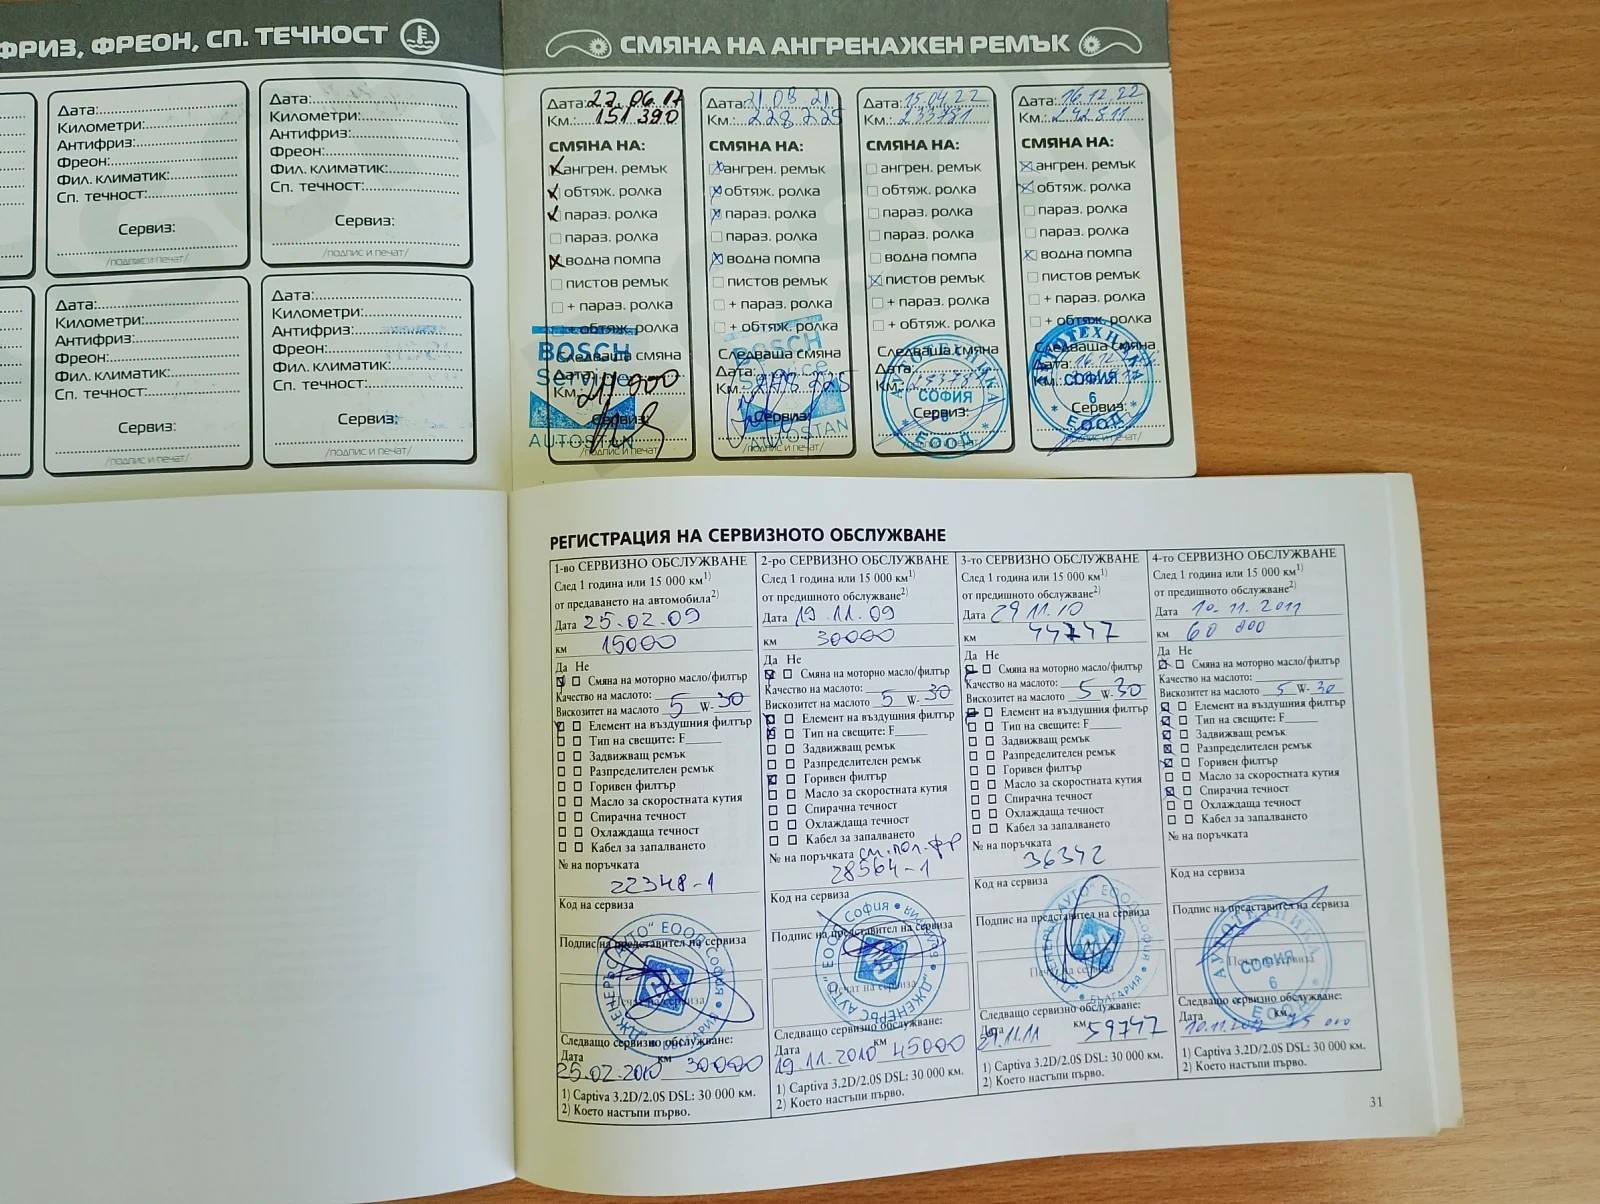 ФРИЗ, ФРЕОН, СП. ТЕЧНОСТ
Дата:
Километри:
Антифриз:
Фреон:
Фил. климатик:
Сп. течност:
Сервиз:
/подпис и печат/
Дата:
Километри:
Антифриз:
Фреон:
Фил. климатик:
Сп. течност:
Сервиз:
/подпис и печат/
Дата:
Километри:
Антифриз:
Фреон:
Фил. климатик:
Сп. течност:
Сервиз:
/подпис и печат/
Дата:
Километри:
Антифриз:
Фреон:
Фил. климатик:
Сп. течност:
Сервиз:
/подпис и печат/
СМЯНА НА АНГРЕНАЖЕН РЕМЪК
Дата: 22.06.17
Км.: 151 390
СМЯНА НА:
ангрен. ремък
обтяж. ролка
параз. ролка
параз. ролка
водна помпа
пистов ремък
+ параз. ролка
+ обтяж. ролка
BOSCH
Service
Следваща смяна
Дата:
Км.: 211 000
Сервиз:
AUTOSTAN
/подпис и печат/
Дата: 21 09 21
Км.: 228 225
СМЯНА НА:
ангрен. ремък
обтяж. ролка
параз. ролка
параз. ролка
водна помпа
пистов ремък
+ параз. ролка
+ обтяж. ролка
BOSCH
Service
Следваща смяна
Дата:
Км.: 278 225
Сервиз:
AUTOSTAN
/подпис и печат/
Дата: 15.04.22
Км.: 233781
СМЯНА НА:
ангрен. ремък
обтяж. ролка
параз. ролка
параз. ролка
водна помпа
пистов ремък
+ параз. ролка
+ обтяж. ролка
Следваща смяна
Дата:
Км.:
Сервиз:
АВТОТЕХНИКА
СОФИЯ
6
ЕООД
/подпис и печат/
Дата: 16.12.22
Км.: 242811
СМЯНА НА:
ангрен. ремък
обтяж. ролка
параз. ролка
параз. ролка
водна помпа
пистов ремък
+ параз. ролка
+ обтяж. ролка
Следваща смяна
Дата: 16.12
Км.:
Сервиз:
АВТОТЕХНИКА
СОФИЯ
6
ЕООД
/подпис и печат/
РЕГИСТРАЦИЯ НА СЕРВИЗНОТО ОБСЛУЖВАНЕ
1-во СЕРВИЗНО ОБСЛУЖВАНЕ
След 1 година или 15 000 км1)
от предаването на автомобила2)
Дата 25.02.09
км 15000
Да Не
Смяна на моторно масло/филтър
Качество на маслото:
Вискозитет на маслото 5 W-30
Елемент на въздушния филтър
Тип на свещите: F
Задвижващ ремък
Разпределителен ремък
Горивен филтър
Масло за скоростната кутия
Спирачна течност
Охлаждаща течност
Кабел за запалването
№ на поръчката
22348-1
Код на сервиза
Подпис на представител на сервиза
"ДЖЕНЕРЪС АУТО" ЕООД София
БЪЛГАРИЯ
Печат на сервиза
Следващо сервизно обслужване:
Дата км
25.02.2010 30000
1) Captiva 3.2D/2.0S DSL: 30 000 км.
2) Което настъпи първо.
2-ро СЕРВИЗНО ОБСЛУЖВАНЕ
След 1 година или 15 000 км1)
от предишното обслужване2)
Дата 19.11.09
км 30000
Да Не
Смяна на моторно масло/филтър
Качество на маслото:
Вискозитет на маслото 5 W-30
Елемент на въздушния филтър
Тип на свещите: F
Задвижващ ремък
Разпределителен ремък
Горивен филтър
Масло за скоростната кутия
Спирачна течност
Охлаждаща течност
Кабел за запалването
№ на поръчката см.пол.фр
28564-1
Код на сервиза
Подпис на представител на сервиза
"ДЖЕНЕРЪС АУТО" ЕООД София
Печат на сервиза
Следващо сервизно обслужване:
Дата км
19.11.2010 45000
1) Captiva 3.2D/2.0S DSL: 30 000 км.
2) Което настъпи първо.
3-то СЕРВИЗНО ОБСЛУЖВАНЕ
След 1 година или 15 000 км1)
от предишното обслужване2)
Дата 29 11.10
км 44747
Да Не
Смяна на моторно масло/филтър
Качество на маслото:
Вискозитет на маслото 5 W-30
Елемент на въздушния филтър
Тип на свещите: F
Задвижващ ремък
Разпределителен ремък
Горивен филтър
Масло за скоростната кутия
Спирачна течност
Охлаждаща течност
Кабел за запалването
№ на поръчката
36342
Код на сервиза
Подпис на представител на сервиза
Печат на сервиза
Следващо сервизно обслужване:
Дата км
29.11.11 59747
1) Captiva 3.2D/2.0S DSL: 30 000 км.
2) Което настъпи първо.
4-то СЕРВИЗНО ОБСЛУЖВАНЕ
След 1 година или 15 000 км1)
от предишното обслужване2)
Дата 10.11.2011
км 60 000
Да Не
Смяна на моторно масло/филтър
Качество на маслото:
Вискозитет на маслото 5 W-30
Елемент на въздушния филтър
Тип на свещите: F
Задвижващ ремък
Разпределителен ремък
Горивен филтър
Масло за скоростната кутия
Спирачна течност
Охлаждаща течност
Кабел за запалването
№ на поръчката
Код на сервиза
Подпис на представител на сервиза
АУТОТЕХНИКА
СОФИЯ
6
ЕООД
Печат на сервиза
Следващо сервизно обслужване:
Дата км
10.11.2012 75 000
1) Captiva 3.2D/2.0S DSL: 30 000 км.
2) Което настъпи първо.
31